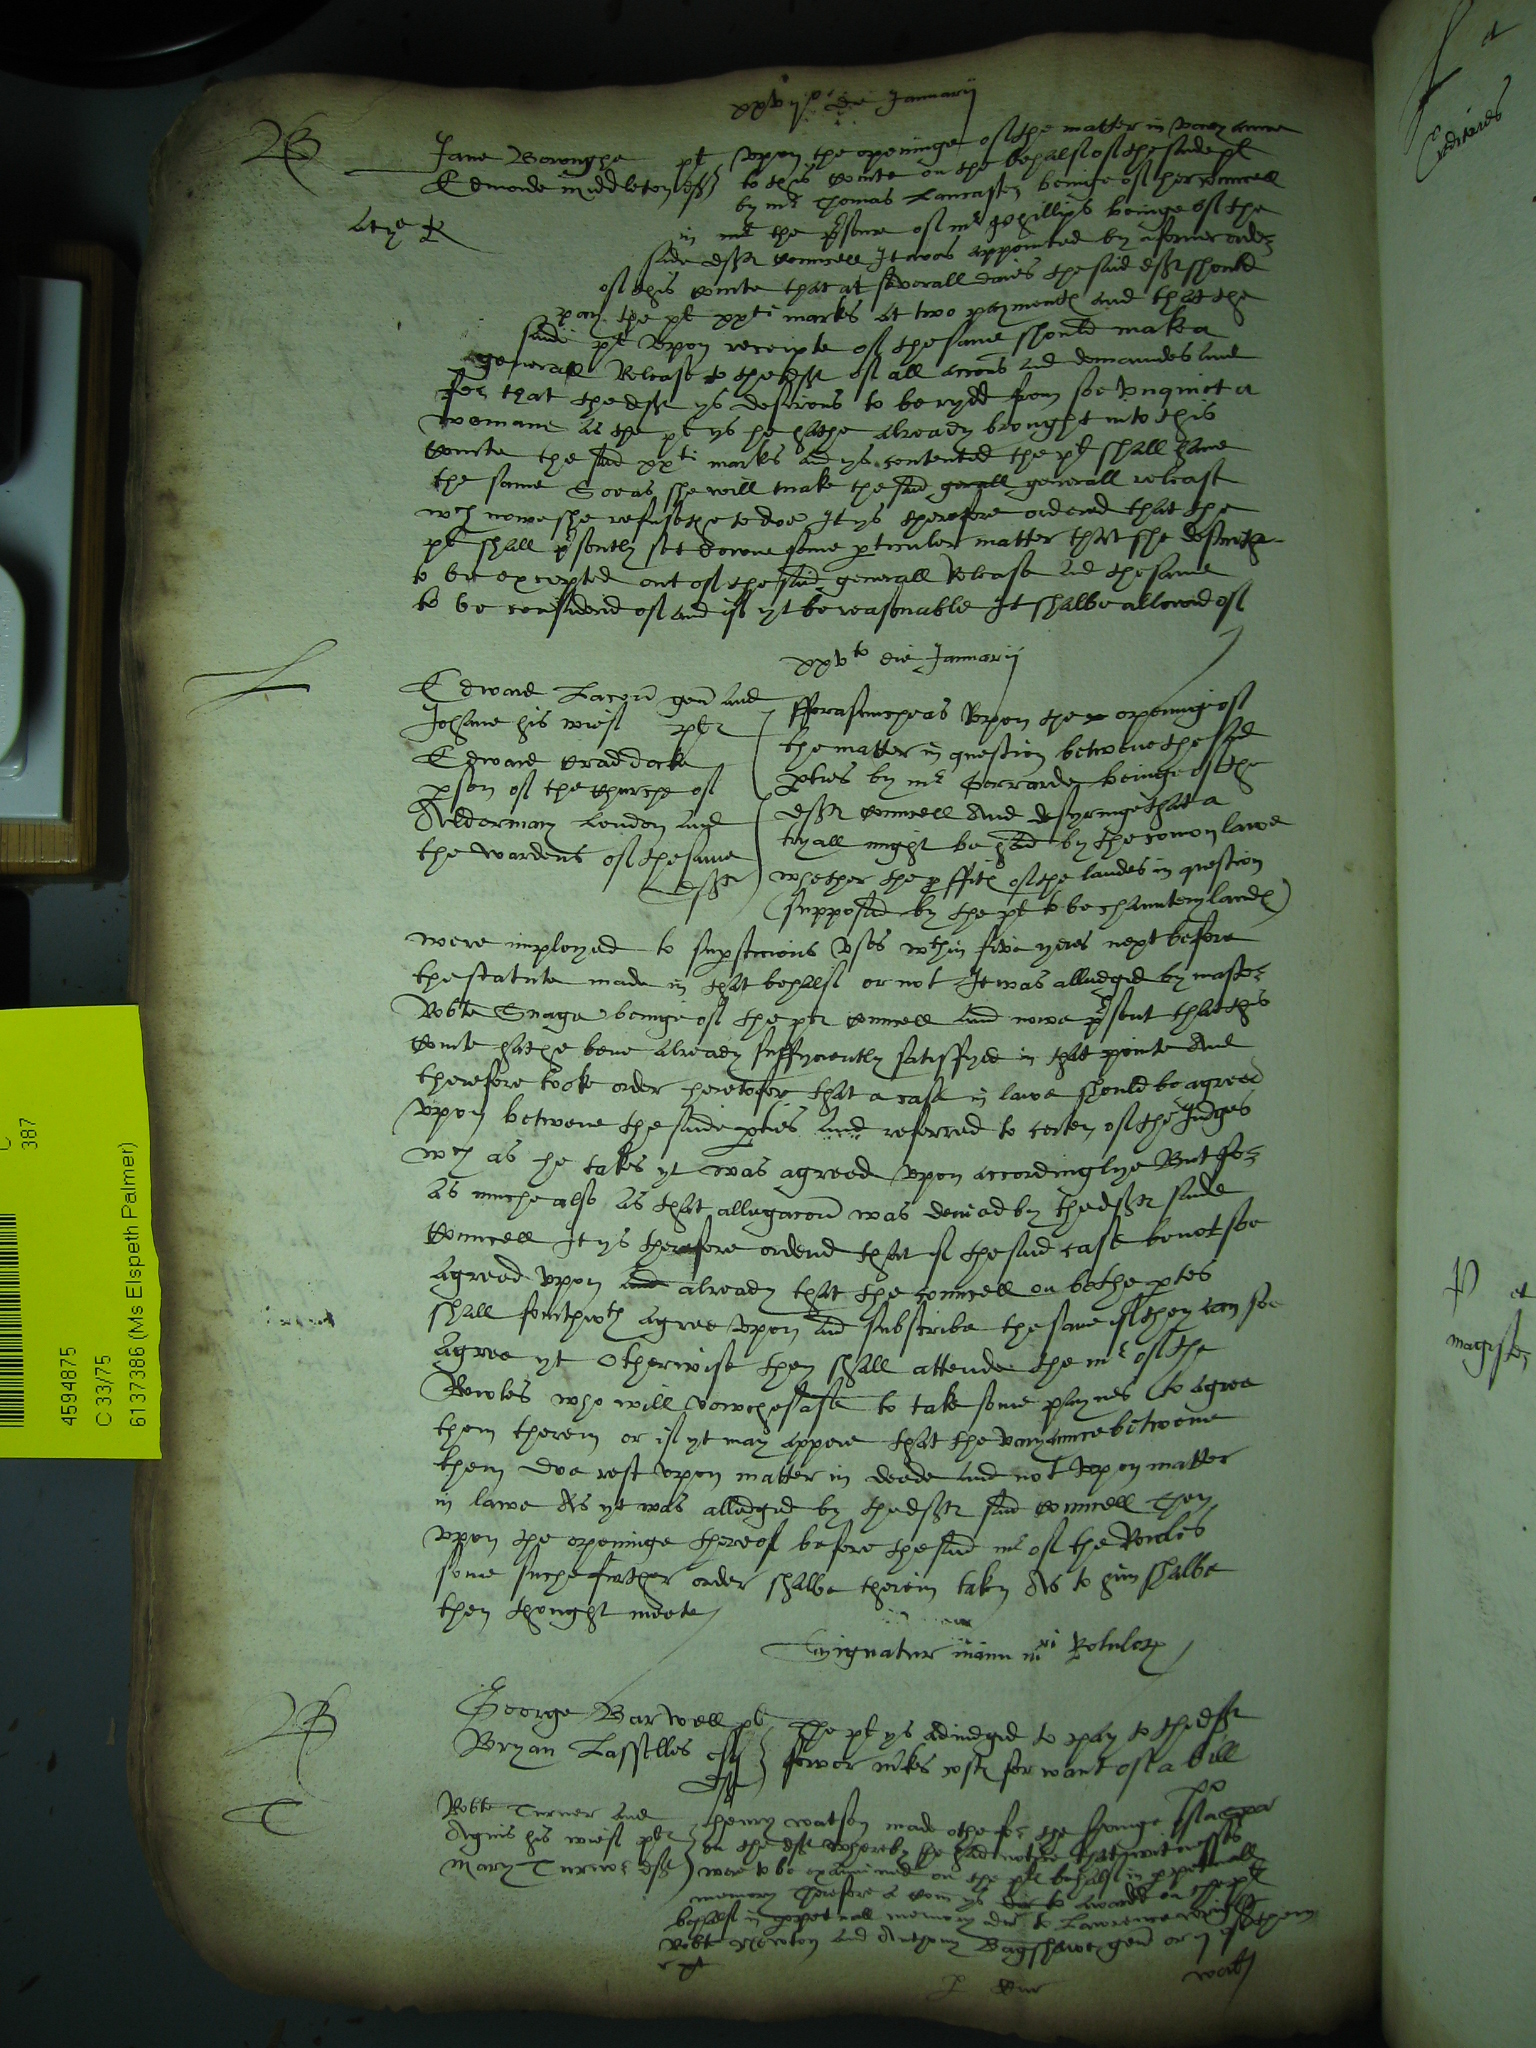 xxvijo die Januarij
B
Jane Borowghe plt
Edmonde Middleton deft
Upon the openinge of the matter in varyaunce
to this Courte on the behalf of the saide plt
by mr Thomas Lancaster beinge of her councell
in the presence of mr Phillips beinge of the
saide deft councell It was appointed by a former order
of this Courte that at severall daies the said deft should
pay the plt xxti marks at two paymentes And that the
saide plt upon receipte of the same should make a
generall Release to the deft of all accons and demaundes And
for that the deft ys desirous to be rydd from soe unquiet a
womane as the plt ys he hathe already brought into this
Courte the said xxti marks and ys contented the plt shall have
the same Soe as she will make the said generall release
wch nowe she refusethe to doe It ys therefore ordered that the
plt shall presently set downe some perticuler matter that she desireth
to be excepted out of the said generall Release and the same
to be considered of and if yt be reasonable It shalbe allowed of
xxvto die Januarij
L
Edward Lacon gen and
Johane his wief plts
Edward Craddocke
pson of the Churche of
Aldermary London and
the wardens of the same
defts
fforasmuche as Upon the openinge of
the matter in question betwene the said
pties by mr Gerrarde beinge of the
defts councell And desyringe that a
tryall might be had by the comon lawe
whether the proffites of the landes in question
(supposed by the plt to be chauntery landes)
were imployed to supsticious uses wthin five yeres next before
the statute made in that behalf or not It was alledged by master
Robte Snagge beinge of the plts councell And nowe present that this
Courte hathe bene already suffyciently satisfyed in that pointe And
therefore tooke order heretofore that a case in lawe should be agreed
upon betwene the saide pties and referred to certen of the Judges
wch as he takes yt was agreed upon accordinglye But for
as muche also as that allegacon was denied by the defts saide
Councell It ys therefore ordered that if the said case be not soe
agreed upon already that the councell on bothe ptes
shall fourthwth agree upon and subscribe the same if they can soe
agree yt Otherwise they shall attende the mr of the
Rowles who will vowchesafe to take some paynes to agree
them therein or if yt may appere that the varyaunce betwene
them doe rest upon matter in deede and not upon matter
in lawe As yt was alledged by the defts said councell Then
upon the openinge thereof before the said mr of the Rowles
some suche further order shalbe therein taken As to him shalbe
then thought meete
Signatur manu mri Rotulor
B
George Barwell plt
Bryan Lassells esq
deft
The plt ys adiudged to pay to the deft
fower mkes costes for want of a bill
T
Robte Turner and
Agnis his wief plts
Mary Turner deft
Henry Watson made othe for the servinge of a spa
on the deft whereby he had notice that witnesses
were to be examined on the plts behalf in perpetuall
memory Therefore a Com ys to awarded on the plts
behalf in perpetuall memory to Lawrence Wright
Robte Newton and Anthony Bagshawe gen or ij of them
Edwardes
et
P et
magister
4594875
C 33/75
6137386 (Ms Elspeth Palmer)
C
387